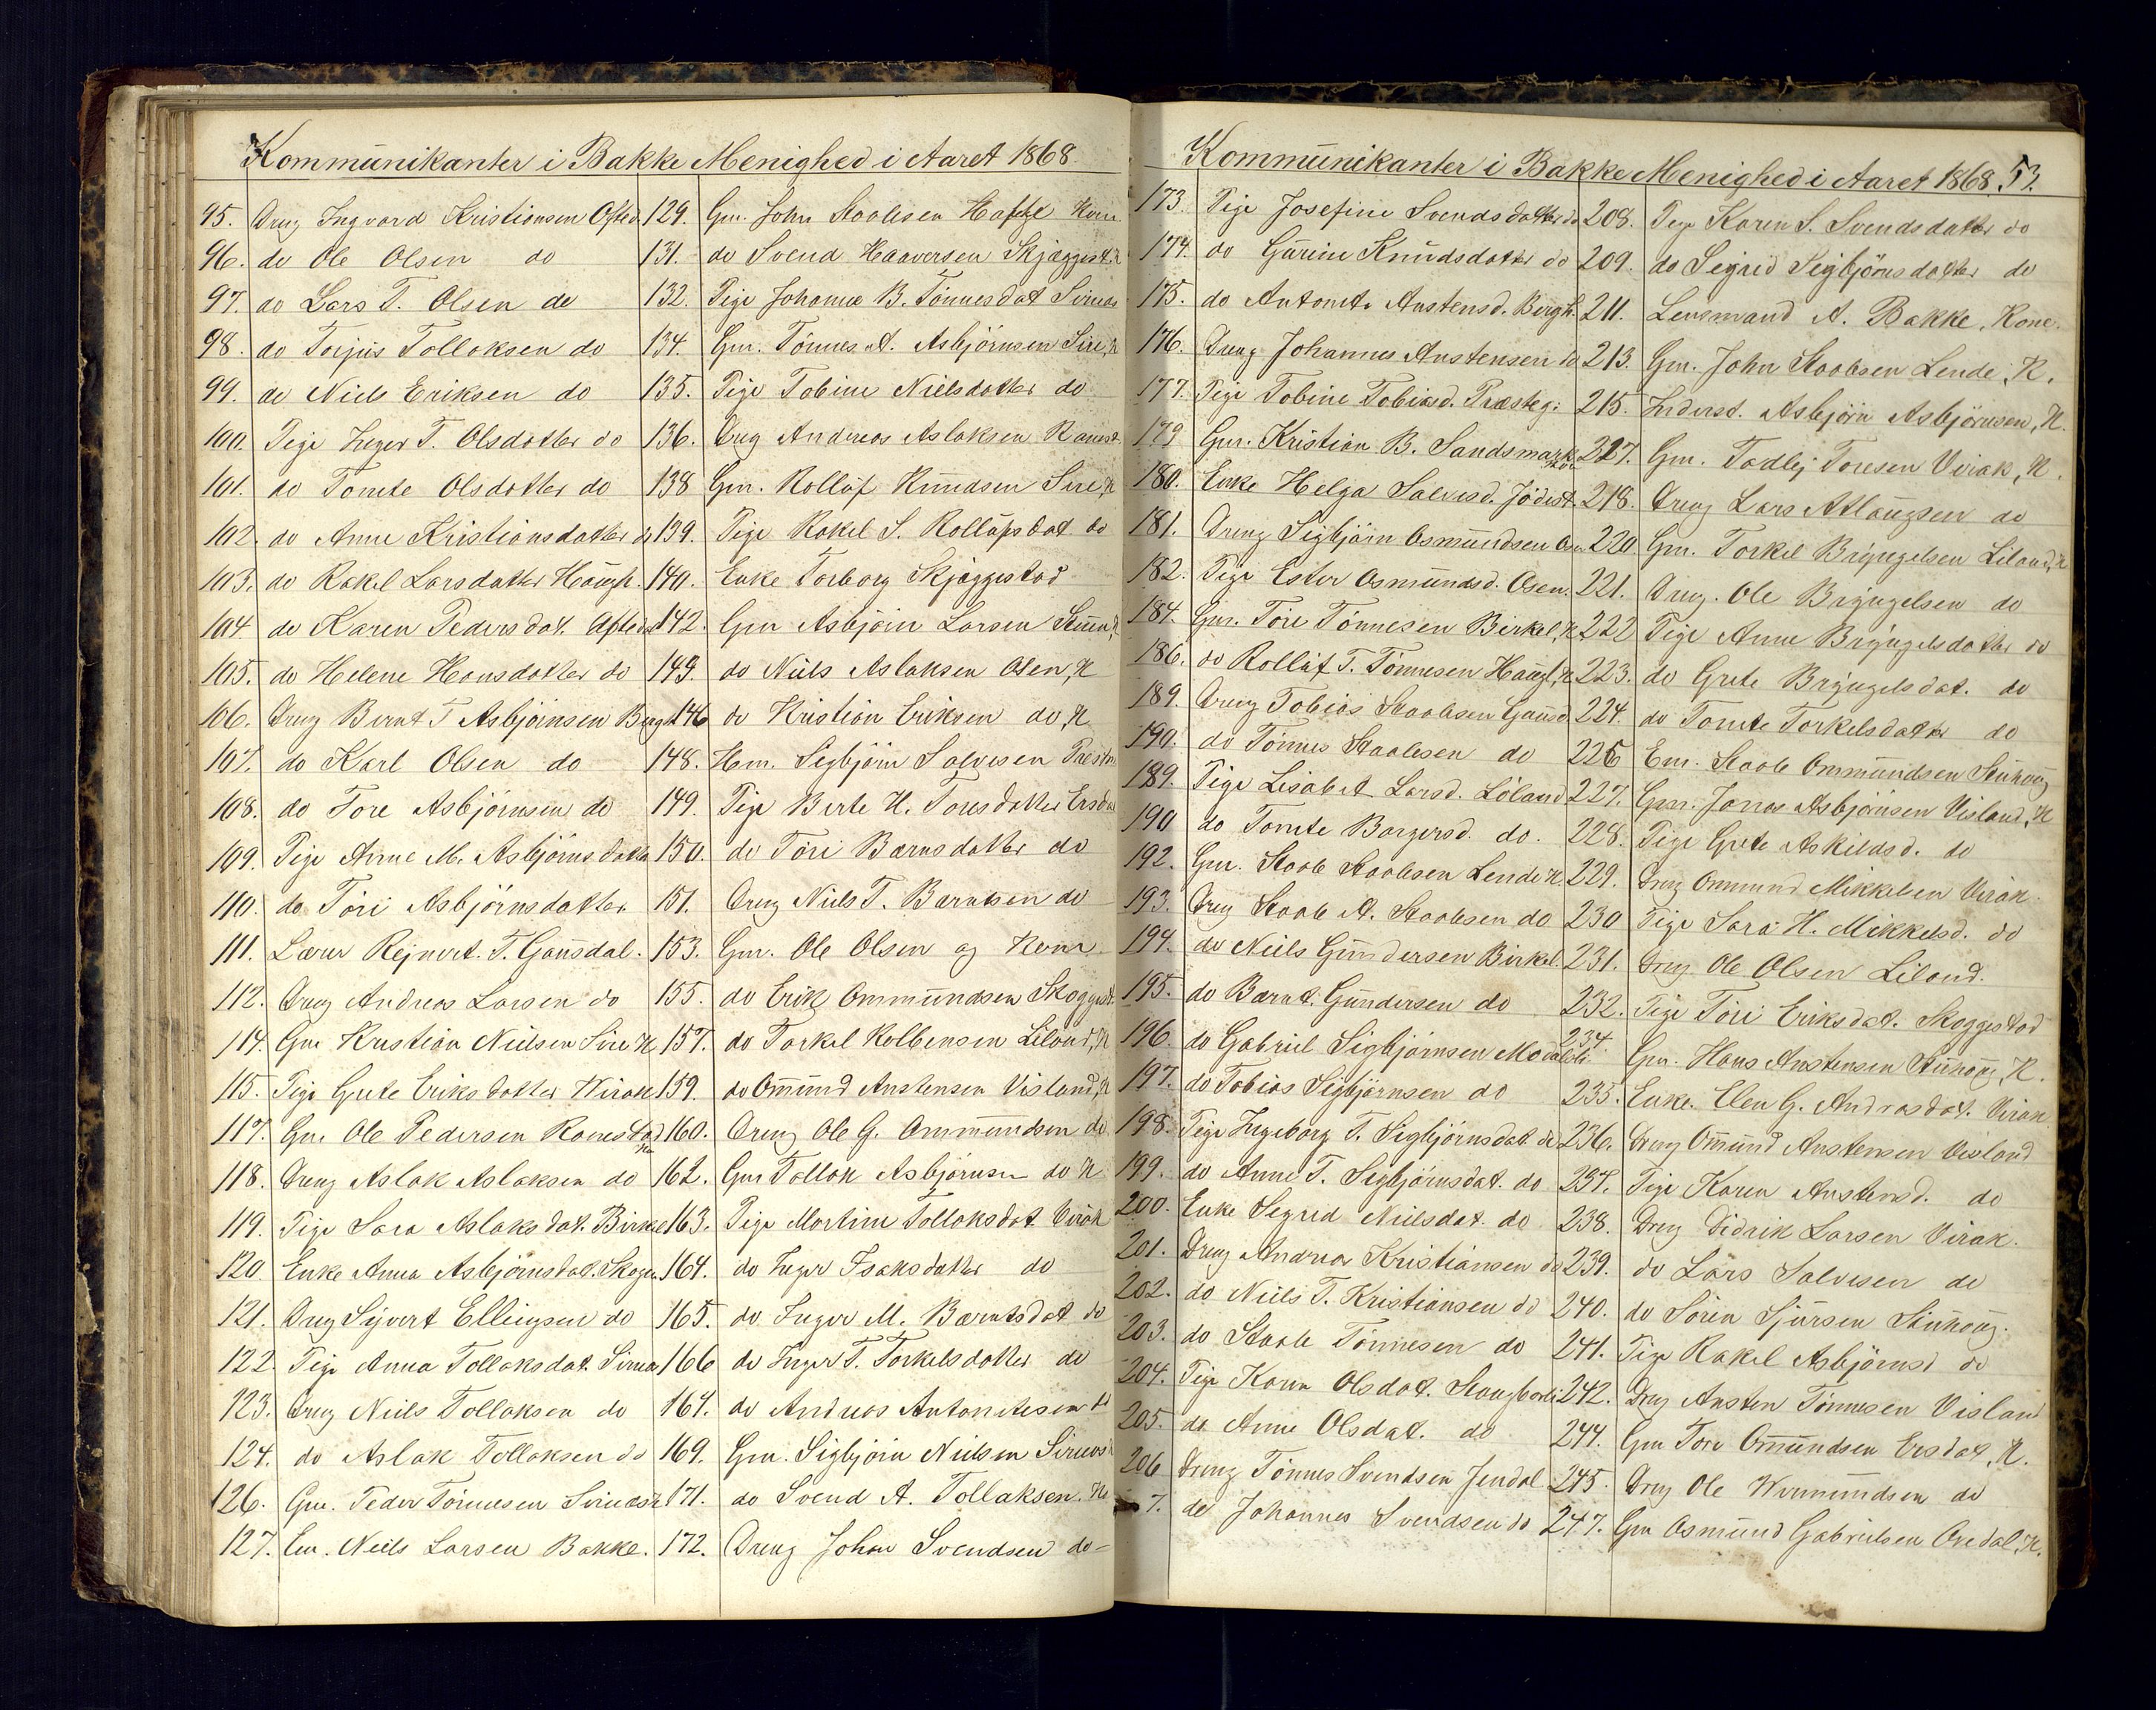 Kommunikanter i Bakke Menighed i Aaret 1868
95. Dreng Ingvard Kristiansen Ofted.
96. do Ole Olsen do
97. do Lars T. Olsen do
98. do Torjus Tollaksen do
99. do Niels Eriksen do
100. Pige Inger T. Olsdatter do
101. do Tomte Olsdatter do
102. do Anne Kristiansdatter do
103. do Rakel Larsdatter Haugh.
104. do Karen Pedersdat. Ofted
105. do Helene Hansdatter do
106. Dreng Bernt T Asbjörnsen Bergh
107. do Karl Olsen do
108. do Tore Asbjörnsen do
109. Pige Anne M. Asbjörnsdatter
110. do Töri Asbjörnsdatter
111. Lærer Rejnert. T. Gausdal.
112. Dreng Andreas Larsen do
114. Gm Kristian Nielsen Sire K
115. Pige Grete Eriksdatter Virak
117. Gm. Ole Pedersen Ranestad
118. Dreng Aslak Aslaksen do
119. Pige Sara Aslaksdat. Birkel
120. Enke Anna Asbjörnsdat. Skogen
121. Dreng Sivert Ellingsen do
122. Pige Anna Tollaksdat. Sirnæs
123. Dreng Niels Tollaksen do
124. do Aslak Tollaksen do
126. Gm. Peder Tönnesen Sirnæs K
127. Em. Neils Larsen Bakke.
129. Gm. John Staalesen Haftje Kone
131. do Svend Haaversen Skjæggest. K
132. Pige Johanne B. Tönnesdat Sirnæs
134. Gm. Tönnes A. Asbjörnsen Sire, K
135. Pige Tobine Nielsdatter do
136. Dreng Andreas Aslaksen Ranest.
138 Gm. Rolluf Knudsen Sire, K
139. Pige Rakel S. Rollufsdat. do
140. Enke Torborg Skjæggestad
142. Gm Asbjörn Larsen
143. do Niels Aslaksen Osen, K
146 do Kristian Eriksen do, K
148. Hm. Sigbjörn Salvesen
149. Pige Berte H. Toresdatter Ersdal
150. do Töri Barnsdatter do
151. Dreng Niels T. Barntsen do
153. Gm. Ole Olsen og Kone
155. do Erik Ommundsen Skoggest.
157. do Torkel Kolbensen Liland, K
159. do Omund Anstensen Visland, K
160. Dreng Ole G. Ommundsen do
162. Gm Tollak Asbjörnsen do K
163. Pige Martine Tollaksdat. Virak
164. do Inger Isaksdatter do
165. do Inger M. Barntsdat do
166 do Inger T. Torkelsdatter do
167. do Andreas Antonatesen do
169. Gm. Sigbjörn Nielsen Sirnæs K
171. do Svend A. Tollaksen. K
172. Dreng Johan Svendsen do
Kommunikanter i Bakke Menighed i Aaret 1868. 53.
173. Pige Josefine Svendsdatter do
174. do Gurine Knudsdatter do
175. do Antonete Anstensd. Bergh.
176. Dreng Johannes Anstensen do
177. Pige Tobine Tobiasd. Præsteg.
179 Gm. Kristian B. Sandsmark Kone
180. Enke Helga Salvesd. Jödest.
181. Dreng Sigbjörn Osmundsen Osen
182. Pige Ester Osmundsd. Osen.
184. Gm. Tore Tönnesen Birkel, K
186. do Rolluf T. Tönnesen Haugl, K
189. Dreng Tobias Staalesen Gausd
190. do Tönnes Staalesen do
189. Pige Lisabet Larsd. Löland
190 do Tomte Borgersd. do.
192. Gm. Staale Staalesen Lende K.
193. Dreng Staale A. Staalesen do
194. do Neils Gundersen Birkel.
195. do Barnt. Gundersen do
196. do Gabriel Sigbjörnsen Modal
197. do Tobias Sigbjörnsen do
198. Pige Ingeborg T. Sigbjörnsdat. do
199. do Anne T. Sigbjörnsdat. do
200. Enke Segrid Nielsdat. do
201. Dreng Andreas Kristiansen do
202. do Niels T. Kristiansen do
203. do Staale Tönnesen do
204. Pige Karen Olsdat.
205. do Anne Olsdat. do
206 Dreng Tönnes Svendsen Jendal
7. do Johannes Svendsen do
208. Pige Karen S. Svendsdatter do
209. do Segrid Sigbjörnsdatter do
211. Lensmand A. Bakke, Kone.
213. Gm. John Staalesen Lende, K.
215. Inderst. Asbjörn Asbjörnsen, K.
217. Gm. Tadlej Toresen Virak, K.
218. Dreng Lars Atlaugsen do
220 Gm. Torkel Brÿngelsen Liland, K
221. Dreng. Ole Brÿngelsen do
222 Pige Anne Brÿngelsdatter do
223. do Grete Brÿngelsdat. do
224. do Tomte Torkelsdatter do
226 Em. Staale Ommundsen Stuhoug
227. Gm. Jonas Asbjörnsen Visland, K
228. Pige Grete Askildsd. do
229. Dreng Ommund Mikkelsen Virak.
230 Pige Sara H. Mikkelsd. do
231. Dreng Ole Olsen Liland.
232. Pige Töri Eriksdat. Skoggestad
234 Gm. Hans Anstensen Stuhoug, K.
235. Enke. Elen G. Andreasdat. Virak
236. Dreng Omund Anstensen Visland
237. Pige Karen Anstensd. do
238. Dreng Didrik Larsen Virak.
239. do Lars Salvesen do
240. do Sören Sjursen Stuhoug.
241. Pige Rakel Asbjörnsd do
242. Dreng Ansten Tönnesen Visland
244. Gm Tore Omundsen Ersdal, K.
245. Dreng Ole Wermundsen do
247. Gm Osmund Gabrielsen Ovedal, K.